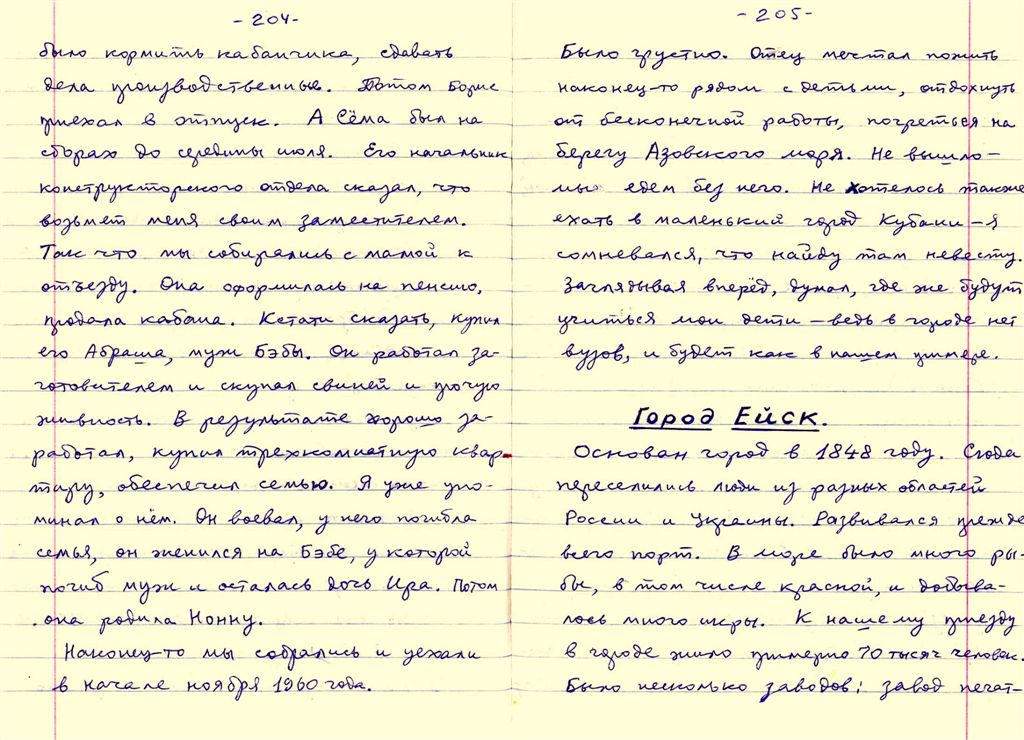 -204-
было кормить кабанчика, сдавать
дела производственные. Потом Борис
приехал в отпуск. А Сёма был на
сборах до середины июля. Его начальник
конструкторского отдела сказал, что
возьмет меня своим заместителем.
Так что мы собирались с мамой к
отъезду. Она оформилась на пенсию,
продала кабана. Кстати сказать, купил
его Абраша, муж Бэбы. Он работал за-
готовителем и скупал свиней и прочую
живность. В результате хорошо за-
работал, купил трехкомнатную квар-
тиру, обеспечил семью. Я уже упо-
минал о нём. Он воевал, у него погибла
семья, он женился на Бэбе, у которой
погиб муж и осталась дочь Ира. Потом
она родила Нонну.
Наконец-то мы собрались и уехали
в начале ноября 1960 года.
-205-
Было грустно. Отец мечтал пожить
наконец-то рядом с детьми, отдохнуть
от бесконечной работы, погреться на
берегу Азовского моря. Не вышло –
мы едем без него. Не хотелось также
ехать в маленький город Кубани – я
сомневался, что найду там невесту.
Заглядывая вперёд, думал, где же будут
учиться мои дети – ведь в городе нет
вузов, и будет как в нашем примере.
Город Ейск.
Основан город в 1848 году. Сюда
переселились люди из разных областей
России и Украины. Развивался прежде
всего порт. В море было много ры-
бы, в том числе красной, и добыва-
лось много икры. К нашему приезду
в городе жило примерно 70 тысяч человек.
Было несколько заводов: завод печат-